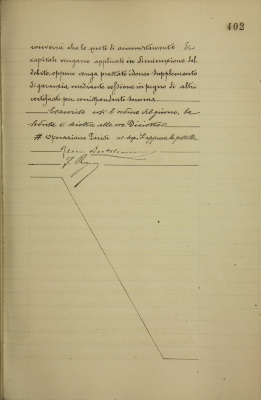 402
converrà che le quote di ammortamento di
capitale vengano applicate in diminuzione del
debito, oppure venga prestato idoneo supplemento
di garanzia, mediante cessione in pegno di altri
certificati per corrispondente somma.
Esaurito così l'ordine del giorno, la
seduta è sciolta alle ore Diciotto.
# operazione